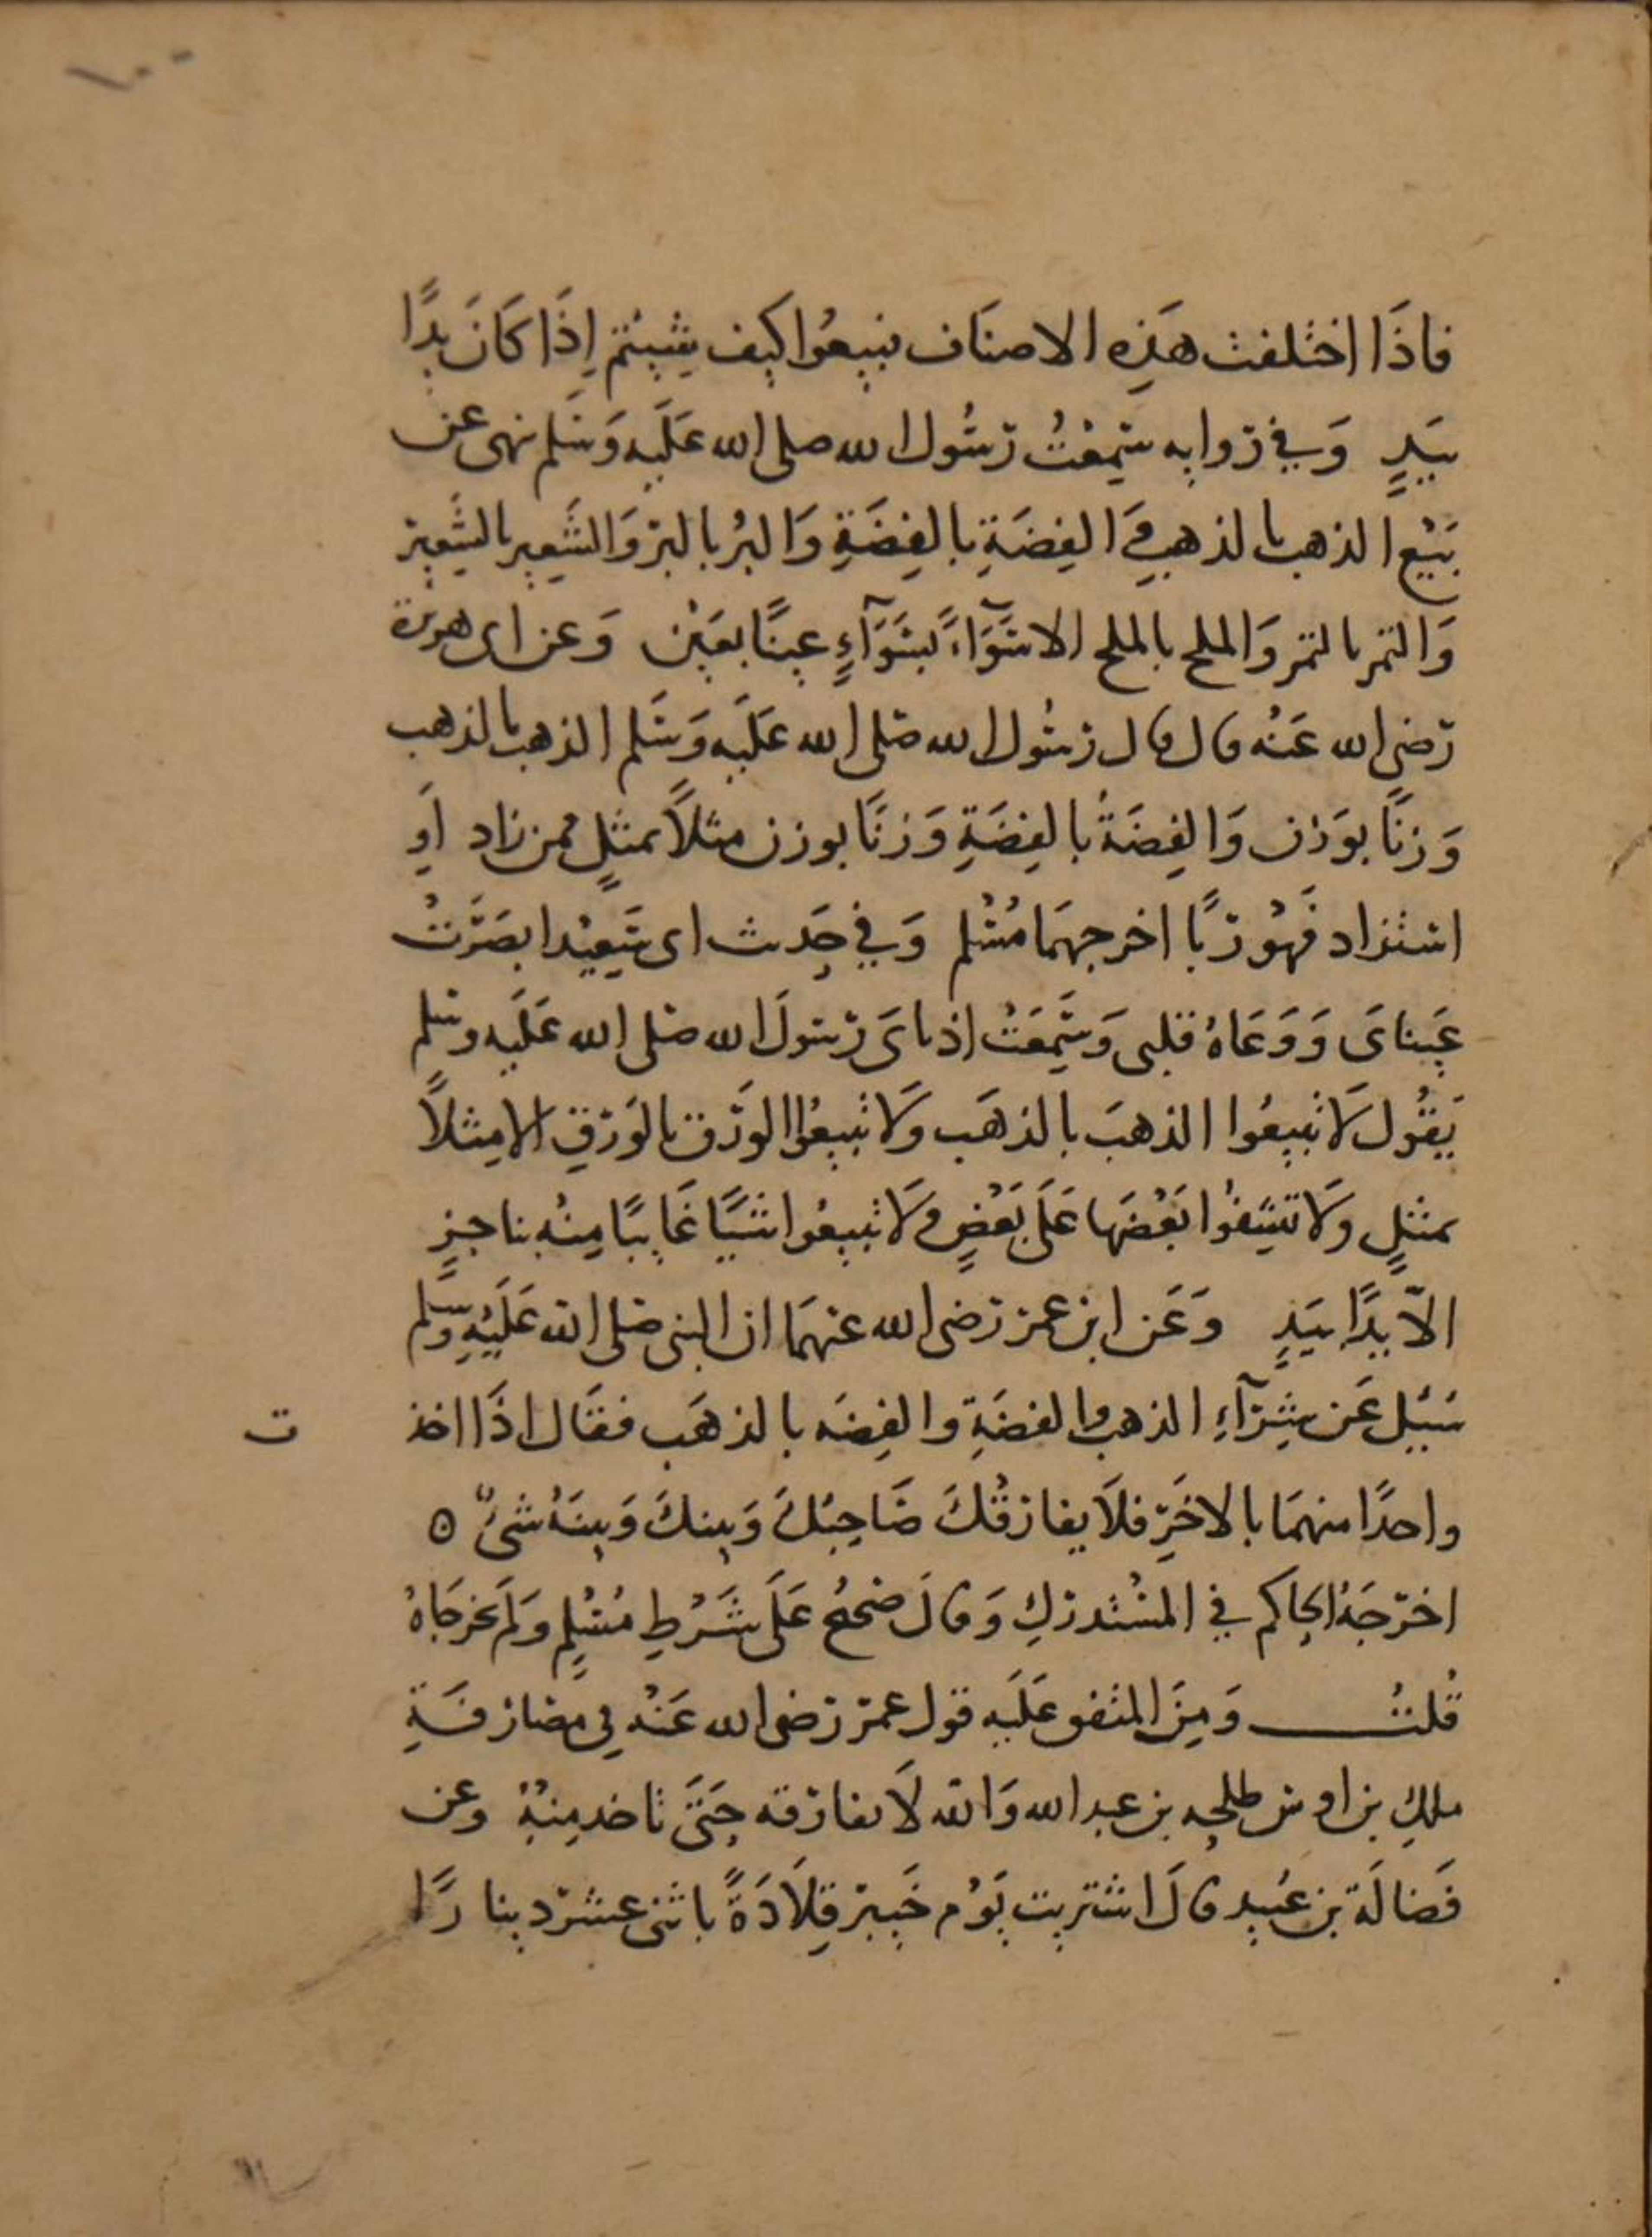 فاذَا اختلفت هَذِه الاصنَاف فبيعُوا كيف شِيتم اِذَا كَانَ يدًا
بيَدٍ وَفي رَوايه سَمِعْتُ رَسُول الله صلى الله عَلَيه وَسَلم نهى عن
بَيْع الذهب بالذهبِ وَالفِضَةِ بالفِضَةِ وَالبُر بالبر وَالشَعِير بالشَعِير
وَالتمر بالتمر وَالملح بالملح الا سَوَآءً بسَوَآءٍ عينًا بعَيْن وَعن ابى هريرة
رَضي الله عَنْه قال قال رسُول الله صَلى الله عَلَيه وَسَلم الذهب بالذهب
وَزنًا بوَزن وَالفِضَةُ بالفِضَةِ وَزنًا بوزن مثلاً بمثلٍ فمن زاد اَو
استزاد فَهُو ربًا اخرجهمَا مُسْلم وَفي حَديث ابى سَعِيْد ابصَرَتْ
عَيناىَ وَوَعَاهُ قلبى وَسَمِعَتْ اذناىَ رَسَولَ الله صَلى الله عَلَيه وسَلم
يَقُول لَا تبيعُوا الذهبَ بالذهَب وَلَا تبيعُوا الوَرَق بالوَرَقِ الا مِثلاً
بمثلٍ وَلَا تشِفُوا بَعْضَهَا عَلَى بَعْضٍ وَلَا تبيعُوا شَيًا غَايبًا مِنْهُ بناجزٍ
الاّ يدًا بيَدٍ وَعَن ابن عمر رَضى الله عنهمَا ان النبى صَلى الله عَلَيْهِ وَسَلم
سُئِل عَن شِرَآءِ الذهب بالفضَةِ والفِضَه بالذهَب فقَال اذَا اخذ
ت
واحدًا منهمَا بالاخَرِ فلَا يفارقْكَ صَاحِبُكَ وَبينكَ وَبينَهُ شىْءٌ ه
اخرَجَهُ الحاكم في المسْتدركِ وَقالَ صَحيحُ عَلَى شَرْطِ مُسْلِمٍ وَلَم يخرجَاهُ
قُلتُ وَمِنَ المتفق عَلَيه قول عمر رَضى الله عَنْه في مصَارفَةِ
ملكِ بن اوس طلحه بن عبد الله وَالله لَا تفارقه حَتَى تاخذ مِنهُ وعن
فَضَالَة بن عُبَيد قالَ اشتريت يَوْم خَيبَر قِلَادَةً باثنى عشر دينارًا